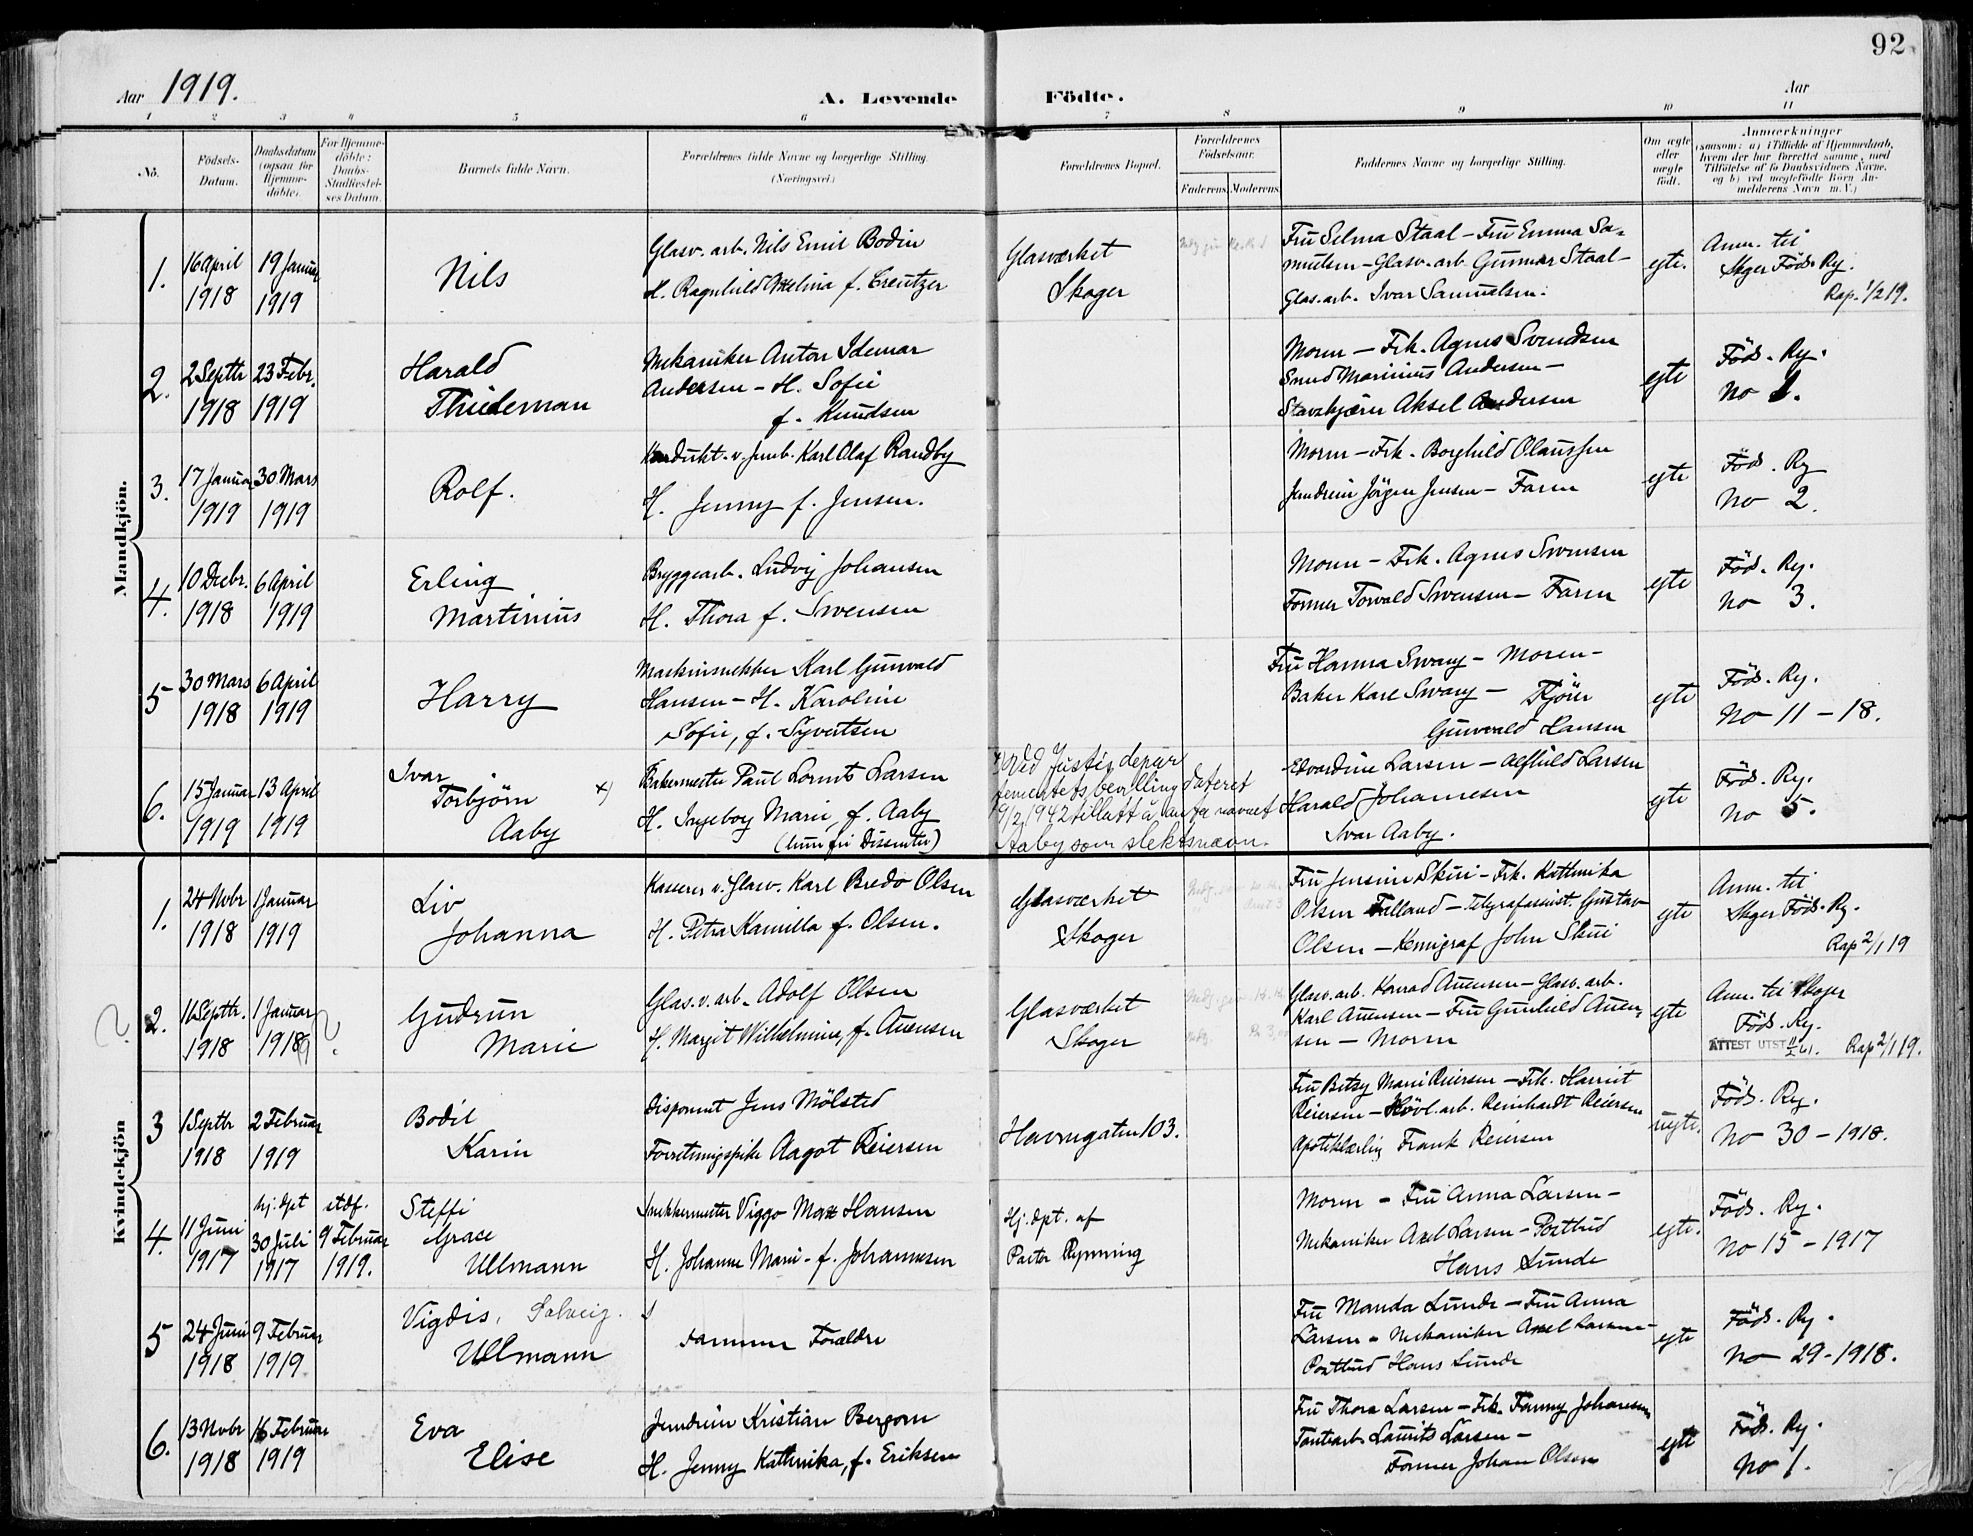 92
Aar 1919.
A. Levende Födte.
Aar
1 2 3 4 5 6 7 8 9 10 11
No.
Födsels-Datum.
Daabsdatum (ogsaa for Hjemme-döbte).
For Hjemme-döbte: Daabs-Stadfæstel-ses Datum.
Barnets fulde Navn.
Forældrenes fulde Navne og borgerlige Stilling. (Næringsvei.)
Forældrenes Bopæl.
Forældrenes Födselsaar.
Faderens. Moderens.
Faddernes Navne og borgerlige Stilling.
Om ægte eller uægte födt.
Anmærkninger
(saasom: a) i Tilfælde af Hjemmedaab,
hvem der har forrettet samme, med
Tilföielse af to Daabsvidners Navne,
og b) ved uægtefödte Börn An-
melderens Navn m. V.)
Mandkjön.
1.
16 April
1918
19 Januar
1919
Nils
Glasv. arb. Nils Emil Bodin
H. Ragnhild Axelina f. Creutzer
Glasværket
Skoger
Fru Selma Staal - Fru Emma Sa-
muelsen - Glasv. arb. Gunnar Staal -
Glas. arb. Ivar Samuelsen.
egte.
Anm. til
Skger Föds. Rg.
Rap. 1/2 19.
2.
2 Septbr
1918
23 Febr.
1919
Harald
Thideman
Mekaniker Anton Idemar
Andersen - H. Sofie
f. Knudsen
Moren - Frk. Agnes Svendsen
Smed Marinius Andersen -
Aksel Andersen
egte
Föds. Rg.
No 1.
3.
17 Januar
1919
30 Mars
1919
Rolf.
Kondukt. v. Jernb. Karl Olaf Randby
H. Jenny f. Jensen.
Moren - Frk. Borghild Olaussen
Jörgen Jensen - Faren
egte
Föds. Rg
No 2.
4.
10 Decbr.
1918
6 April
1919
Erling
Martinius
Bryggearb. Ludvig Johansen
H. Thora f. Svensen
Moren - Frk. Agnes Svensen
Former Torvald Svensen - Faren
egte
Föd. Rg.
No 3.
5
30 Mars
1918
6 April
1919
Harry
Maskinsnekker Karl Gunvald
Hansen - H. Karoline
Sofie, f. Syvertsen
Fru Hanna Svang - Moren -
Baker Karl Svang -
Gunvald Hansen
egte
Föds. Rg.
No 11 - 18.
6.
15 Januar
1919
13 April
1919
Ivar
Torbjörn x)
Aaby
Bakermester Paul Lornts Larsen
H. Ingeborg Marie, f. Aaby
(hun fri Dissenter)
x) Ved Justisdepar
tementets bevilling dateret
9/2 1942 tillatt å anta navnet
Aaby som slektsnavn.
Edvardine Larsen - Alfhild Larsen
Harald Johannesen
Ivar Aaby.
egte
Föds. Rg.
No 5.
Kvindekjön
1.
24 Novbr
1918
1 Januar
1919
Liv
Johanna
Kasserer v. Glasv. Karl Bredo Olsen
H. Petra Kamilla f. Olsen.
Glasværket
Skoger
Fru Jensine Skui - Frk. Kathinka
Olsen Falland - Telegrafassist. Gustav
Olsen - Kemigraf John Skui
egte
Anm. til
Skger Föds. Rg.
Rap 2/1 19
?
2.
16 Septbr.
1918
1 Januar
1919 ?
Gudrun
Marie
Glas. v. arb. Adolf Olsen
H. Margit Wilhelmine, f. Auensen
Glasværket
Skoger
Glasv. arb. Konrad Auensen - Glasv. arb.
Karl Auensen - Fru Gunhild Auen-
sen - Moren
egte
Anm. til Skoger
Föds. Rg.
ATTEST UTST. Rap 2/1 19.
3
1 Septbr
1918
2 Februar
1919
Bodil
Karin
Disponent Jens Mölsted
Forretningspike Aagot Reiersen
Havnegaten 103.
Fru Betzy Marie Reiersen - Frk. Harriet
Reiersen - Hövl. arb. Reinhardt Reiersen
Apoteklærling Frank Reiersen
uegte.
Föds. Rg.
No 30 - 1918.
4.
11 Juni
1917
hj. dpt
30 Juli
1917
stdf.
9 Februar
1919.
Steffi
Grace
Ullmann
Snekkermester Viggo Max Hansen
H. Johanne Marie - f. Johannesen
Hj. dpt. af
Pastor Rynning
Moren - Fru Anna Larsen -
Mekaniker Axel Larsen - Postbud
Hans Lunde
egte.
Föds. Rg.
No 15 - 1917
5
24 Juni
1918
9 Februar
1919
Vigdis, Solveig.
Ullmann
samme Forældre
Fru Manda Lunde - Fru Anna
Larsen - Mekaniker Axel Larsen -
Postbud Hans Lunde
egte
Föds. Rg.
No 29 - 1918.
6.
13 Novbr
1918
16 Februar
1919
Eva
Elise
Jerndreier Kristian Bergom
H. Jenny Kathinka, f. Eriksen
Fru Thora Larsen - Frk. Fanny Johansen
Tomtearb. Laurits Larsen -
Former Johan Olsen
egte
Föds. Rg.
No 1.